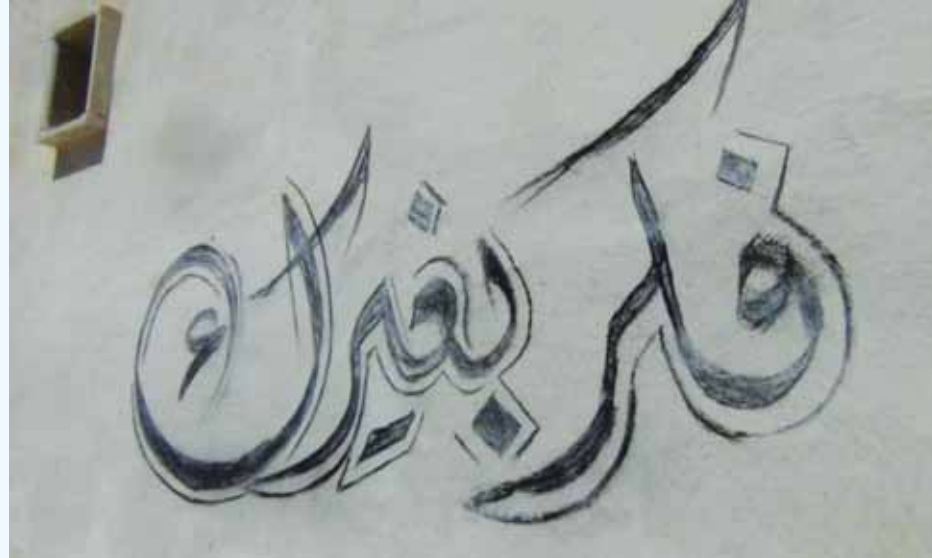 فكر بغيرك